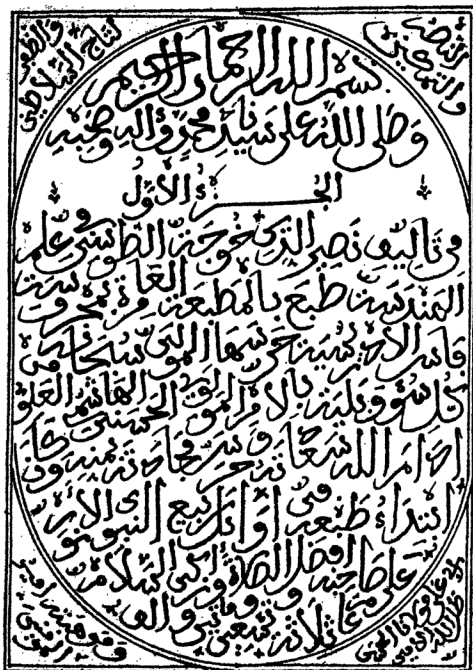 بسم الله الرحمان الرحيم
وصلى الله على سيدنا محمد وآله وصحبه
الجزء الأول
من تأليف نصير الدين خوجة الطوسي في علم
الهندسة طبع بالمطبعة العامرة بمحروسة
فاس الإدريسية حرسها المولى سبحانه من
كل سوء وبلية بالأمر المولوي الحسني الهاشمي العلوي
أدام الله سعادته وحرس مجادته بمنه وكان
ابتداء طبعه في أوائل ربيع النبوي الأنور
على صاحبه أفضل الصلاة وأزكى السلام
عام ثلاثة وتسعين ومائتين وألف
النصر
والتمكين
والظفر
لتاج السلاطين